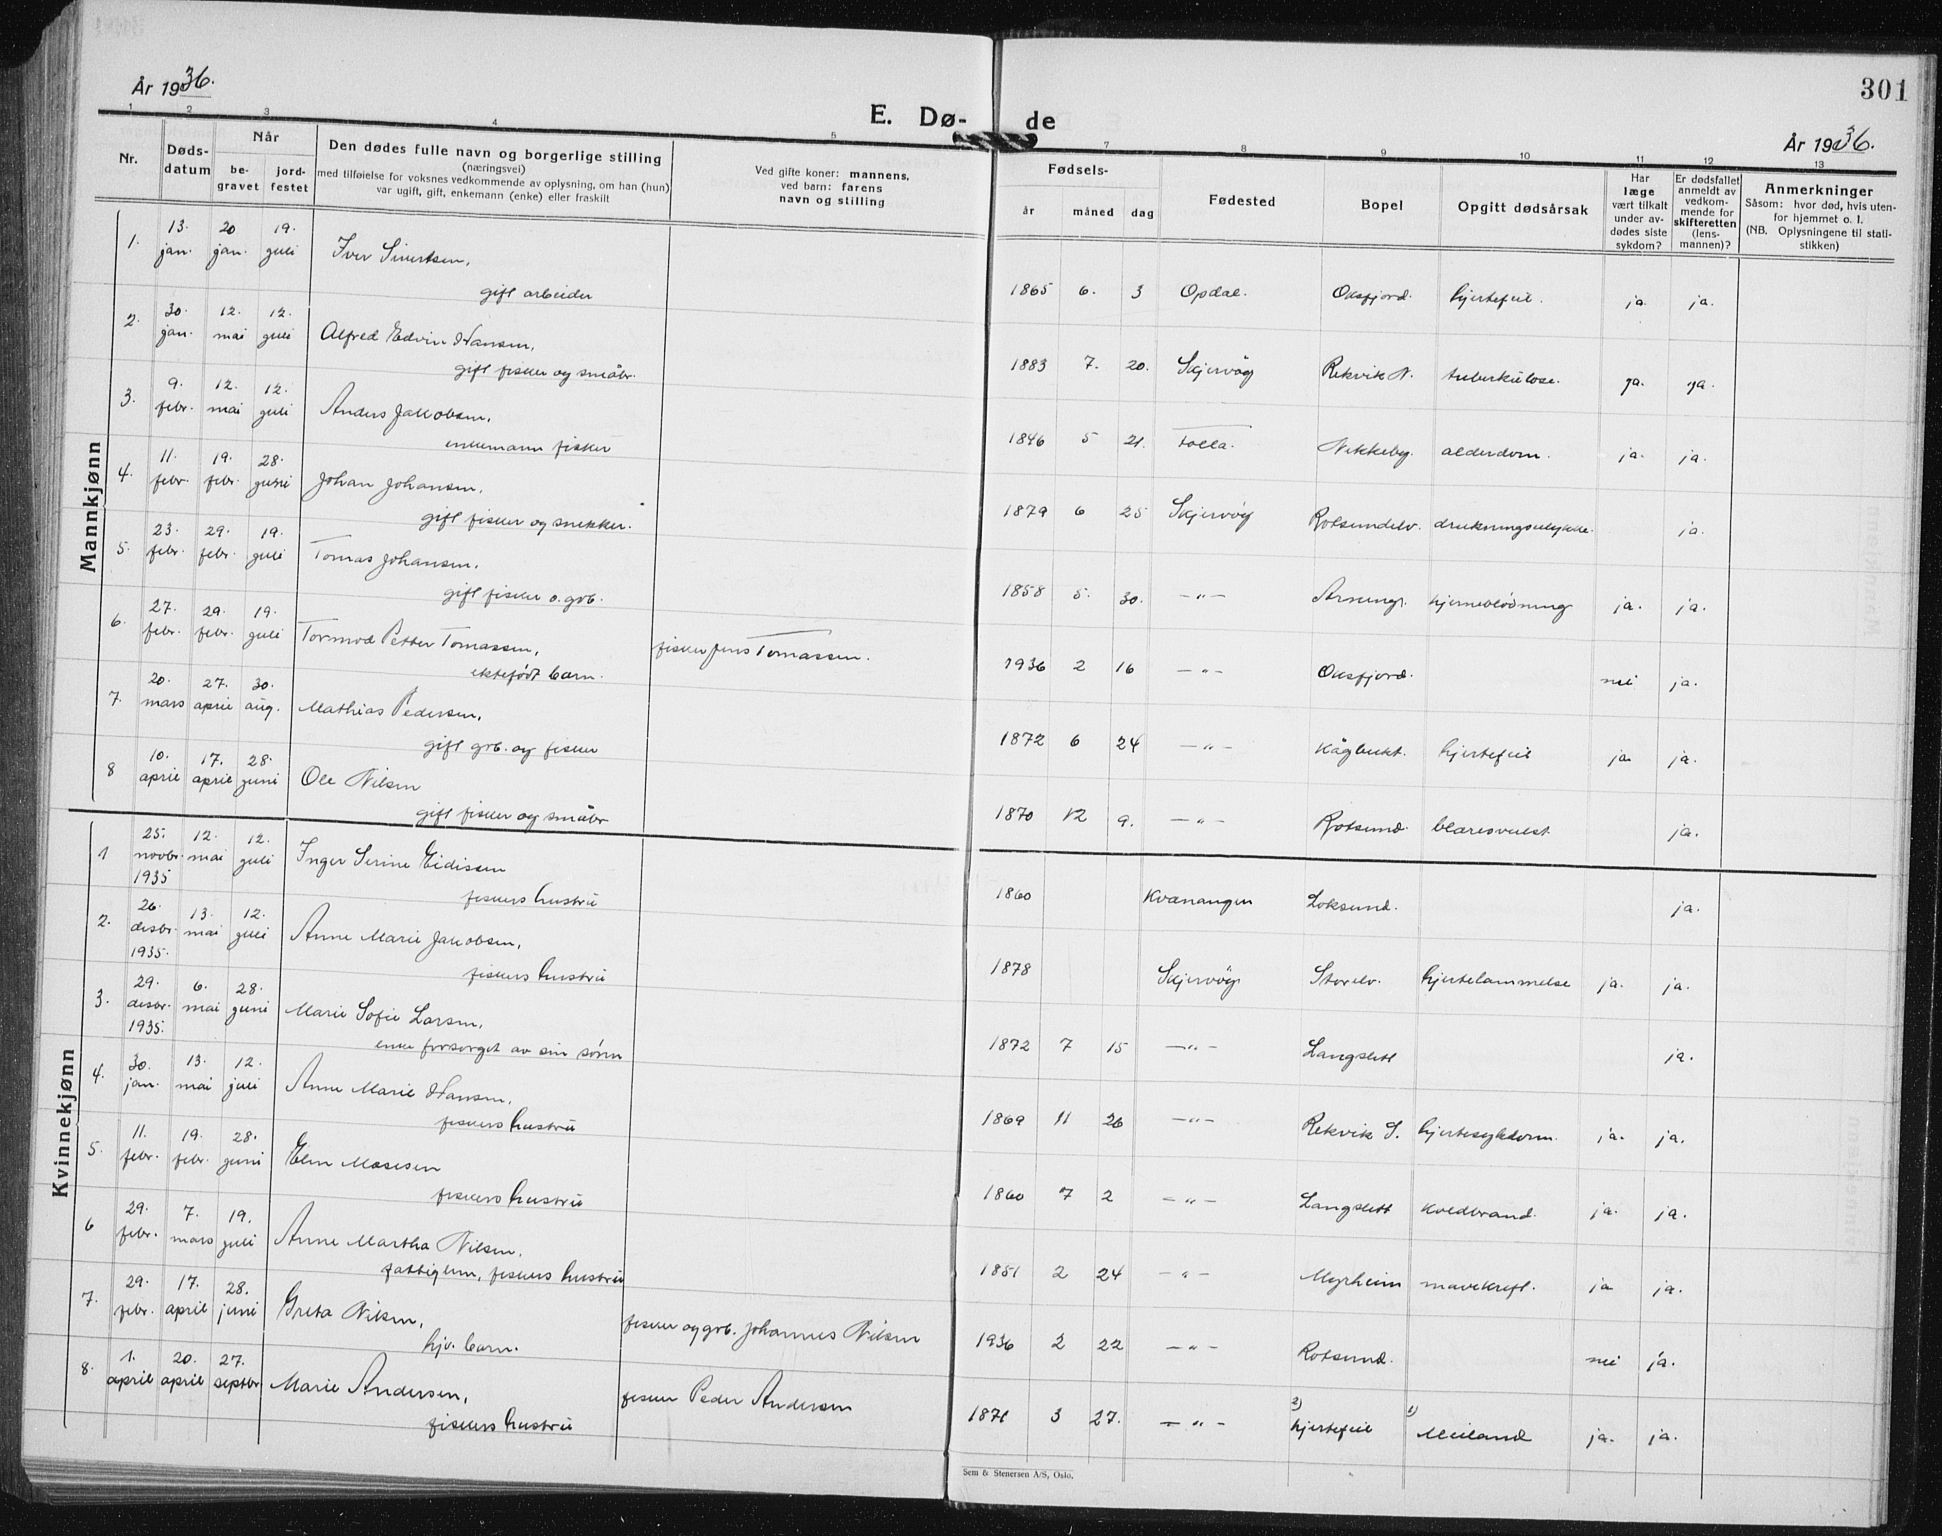 År 1936.
301
E. Dø- de
År 1936.
1 2 3 4 5 7 8 9 10 11 12 13
Nr.
Døds-
datum
Når
be-
gravet
jord-
festet
Den dødes fulle navn og borgerlige stilling
(næringsvei)
med tilføielse for voksnes vedkommende av oplysning, om han (hun)
var ugift, gift, enkemann (enke) eller fraskilt
Ved gifte koner: mannens,
ved barn: farens
navn og stilling
Fødsels-
år måned dag
Fødested
Bopel
Opgitt dødsårsak
Har
læge
vært tilkalt
under av-
dødes siste
sykdom?
Er dødsfallet
anmeldt av
vedkom-
mende for
skifteretten
(lens-
mannen)?
Anmerkninger
Såsom: hvor død, hvis uten-
for hjemmet o. l.
(NB. Oplysningene til stati-
stikken)
Mannkjønn
1. 13. jan. 20 jan. 19. juli Iver Sivertsen,
gift arbeider
1865 6. 3 Opdal. Oksfjord. hjertefeil. ja. ja.
2. 30. jan. 12. mai 12. juli Alfred Edvin Hansen,
gift fisker og småbr.
1883 7. 20. Skjervøy Rekvik N. tuberkulose. ja. ja.
3. 9. febr. 12. mai 12. juli Anders Jakobsen,
enkemann fisker
1846 5 21. Tolla. Nikkeby. alderdom. ja. ja.
4. 11. febr. 19. febr. 28. juni Johan Johansen,
gift fisker og snekker.
1879 6 25 Skjervøy Rotsundelv. drukningsulykke. ja.
5. 23. febr. 29. febr. 19. juli Tomas Johansen,
gift fisker o. grb.
1858 5. 30. -"- hjerneblødning ja. ja.
6. 27. febr. 29. febr. 19. juli Tormod Petter Tomassen, fisker Jens Tomassen.
ektefødt barn.
1936 2 16 -"- Oksfjord. nei ja.
7. 20. mars 27. april 30. aug. Mathias Pedersen,
gift grb. og fisker
1872 6 24 -"- Kågbukt. hjertefeil ja ja.
8 10. april 17. april 28. juni Ole Nilsen
gift fisker og småbr
1870 12 9. -"- Rotsund. blæresvulst. ja.
Kvinnekjønn
1 25. novbr. 1935 12. mai 12. juli Inger Serine Eidissen
fiskers hustru
1860 Kvænangen Loksund. ja.
2. 26. desbr. 1935. 13. mai 12. juli Anne Marie Jakobsen,
fiskers hustru
1878 Skjervøy Storelv. hjertelammelse ja. ja.
3. 29. desbr. 1935. 6. mai 28. juni Marie Sofie Larsen,
enke forsørget av sin sønn
1872 7 15 -"- Langslett ja.
4. 30. jan. 13. mai 12. juli Anne Marie Hansen,
fiskers hustru
1869 11 26 -"- Rekvik S. hjertesykdom. ja. ja.
5. 11. febr. 19. febr. 28. juni Elen Mosesen
fiskers hustru
1860 7 2 -"- Langslett koldbrand. ja. ja.
6 29. febr. 7. mars 19. juli Anne Martha Nilsen,
fattiglem, fiskers hustru
1851 2 24 -"- Myrheim mavekreft. ja ja.
7. 29. febr. 17. april 28. juni Greta Nilsen, fisker og grb. Johannes Nilsen
hjv. barn.
1936 2 22 -"- Rotsund. nei ja.
8. 1. april 20. april 27. septbr. Marie Andersen, fisker Peder Andersen
fiskers hustru
1871 3 27. -"- 2) hjertefeil 1) Meiland ja. ja.
Sem & Stenersen A/S, Oslo.